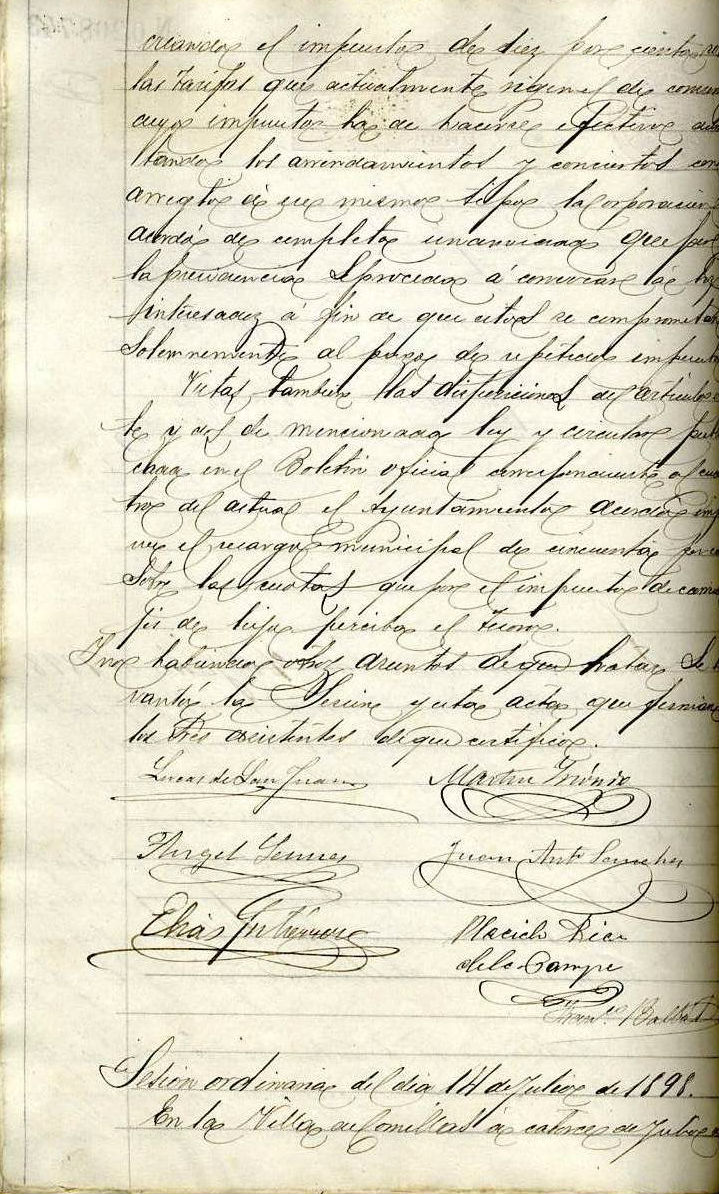 creando el impuesto de diez por ciento
las tarifas que actualmente rigen el de
cuyo impuesto ha de hacerse efectivo
los arrendamientos y conciertos con
arreglo á ese mismo tipo la corporacion
acordó de completa unanimidad que por
la presidencia se proceda á convocar á
interesados á fin de que estos se comprometan
solemnemente al pago de repetido impuesto
Vistas tambien las disposiciones del articulo
y dos de mencionada ley y circular
en el Boletin oficial correspondiente al
del actual el Ayuntamiento acordó
el recargo municipal de cincuenta por
sobre las cuotas que por el impuesto de
de lujo perciba el Tesoro.
Y no habiendo otros asuntos de que tratar se
vantó la Sesion y esta acta que firman
los Sres asistentes de que certifico.
Lucas de San Juan Martin
Angel Juan Antº Sanchez
Elias Gutierrez Placido Diez
de la Campa
Franco
Sesion ordinaria del dia 14 de Julio de 1898.
En la Villa de Comillas á catorce de Julio